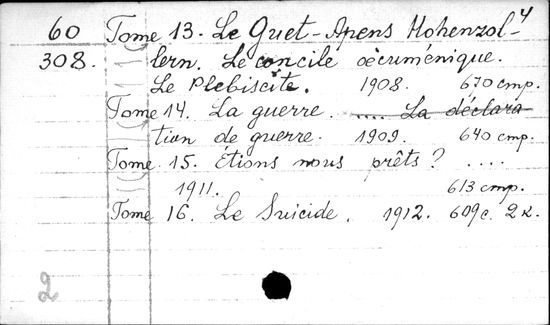 4
60 Tome 13. Le Guet-Apens Hohenzol-
308. lern. Le concile œcuménique.
Le Plébiscite. 1908. 670 стр.
Tome 14. La guerre. .... La déclara
tion de guerre. 1909. 640 стр.
Tome 15. Étions nous prêts? ....
1911. 613 стр.
Tome 16. Le Suicide. 1912. 609 с. 2 к.
2